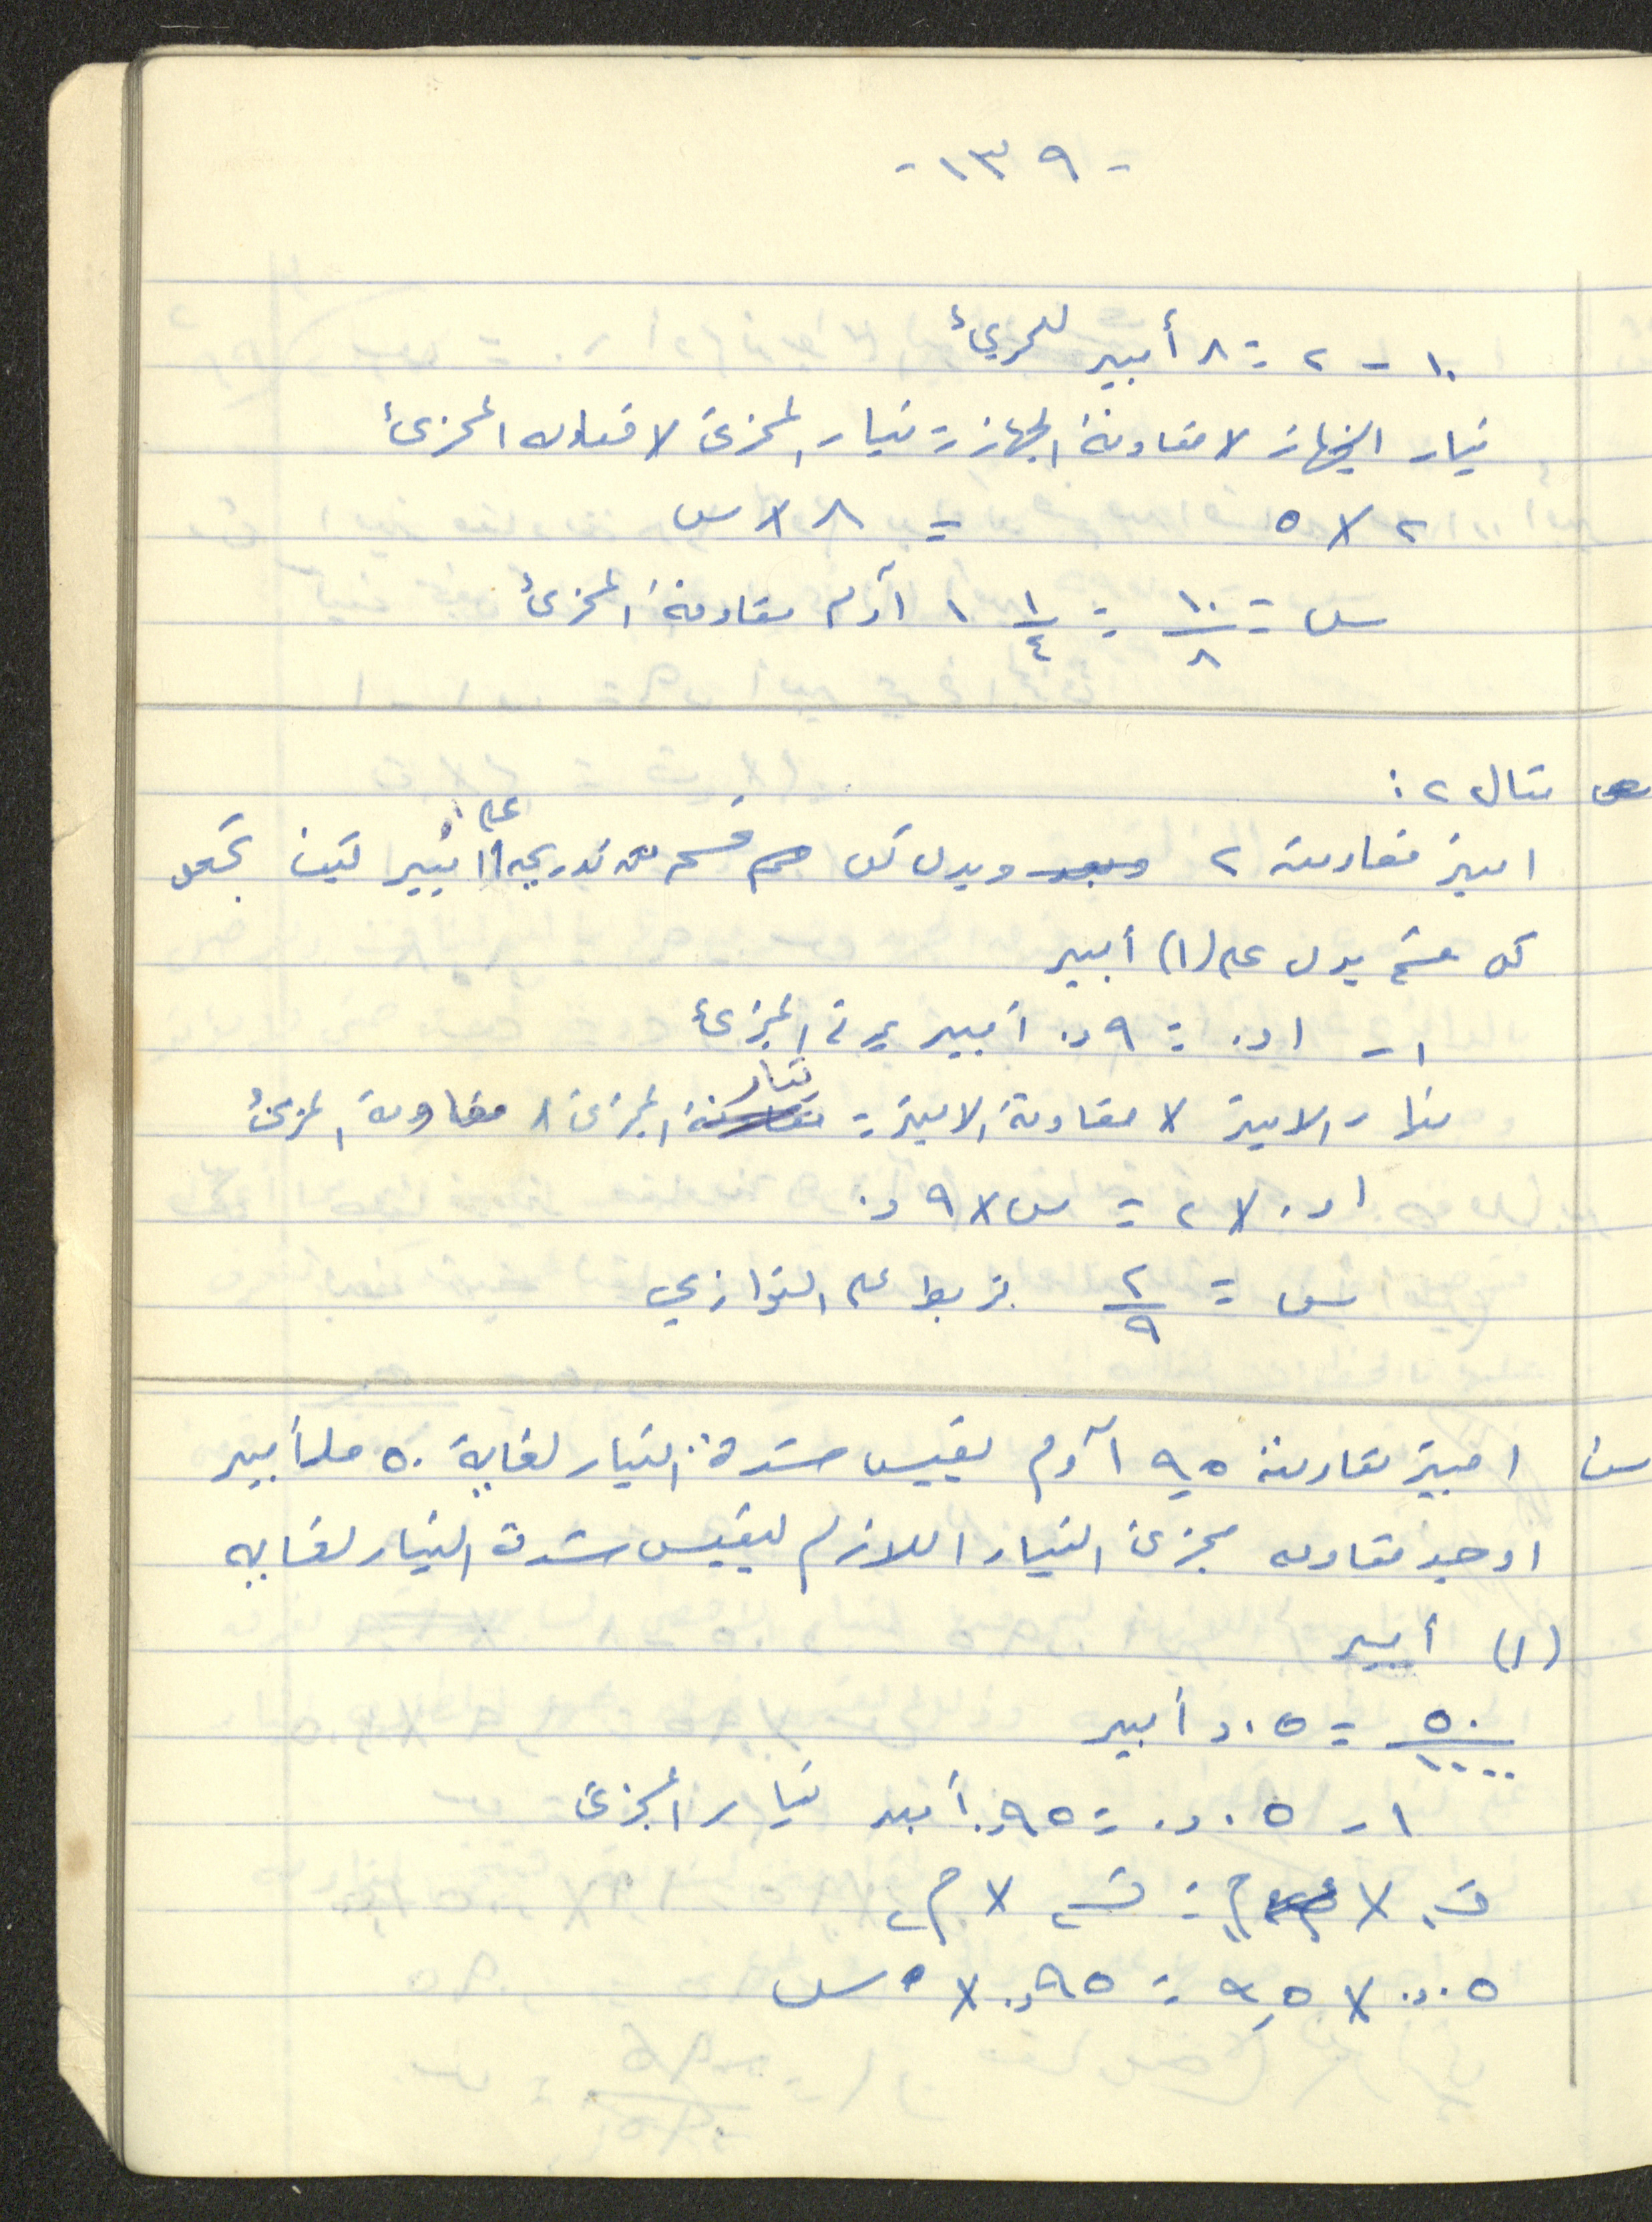 - ١٣٩ -
١٠ - ٢ = ٨ أمبير للمجزئ
تيار الجهاز × مقاومة الجهاز = تيار المجزئ × مقاومه المجزئ
٢ × ٥ = ٨ × س
س = ١٠/٨ = ١ ١/٤ آوم مقاومة المجزئ
مثال ٢ :
اميتر مقاومته ٢ ويدل كل قسم من تدريجه على ا, امبير كيف تجعل
كل قسم يدل على (١) أمبير
١ - ١و. = ٩و. امبير يمر في المجزئ
تيار الاميتر × مقاومة الاميتر = تيار المجزئ × مقاومة المجزئ
١و. × ٢ = س × ٩و.
س = ٢/٩ تربط على التوازي
س اميتر مقاومته ٩٫٥ آوم يقيس شدة التيار لغاية ٥٠ ملأمبير
اوجد مقاومه مجزئ التيار اللازم ليقيس شدة التيار لغايه
(١) أمبير
٥٠/١٠٠٠ = ٠٥و أمبير
١ - ٠٥و. = ٩٥و. أمبير تيار المجزئ
ت١ × م١ = ت٢ × م٢
٠٥و. × ٩٫٥ = ٩٥و. × س